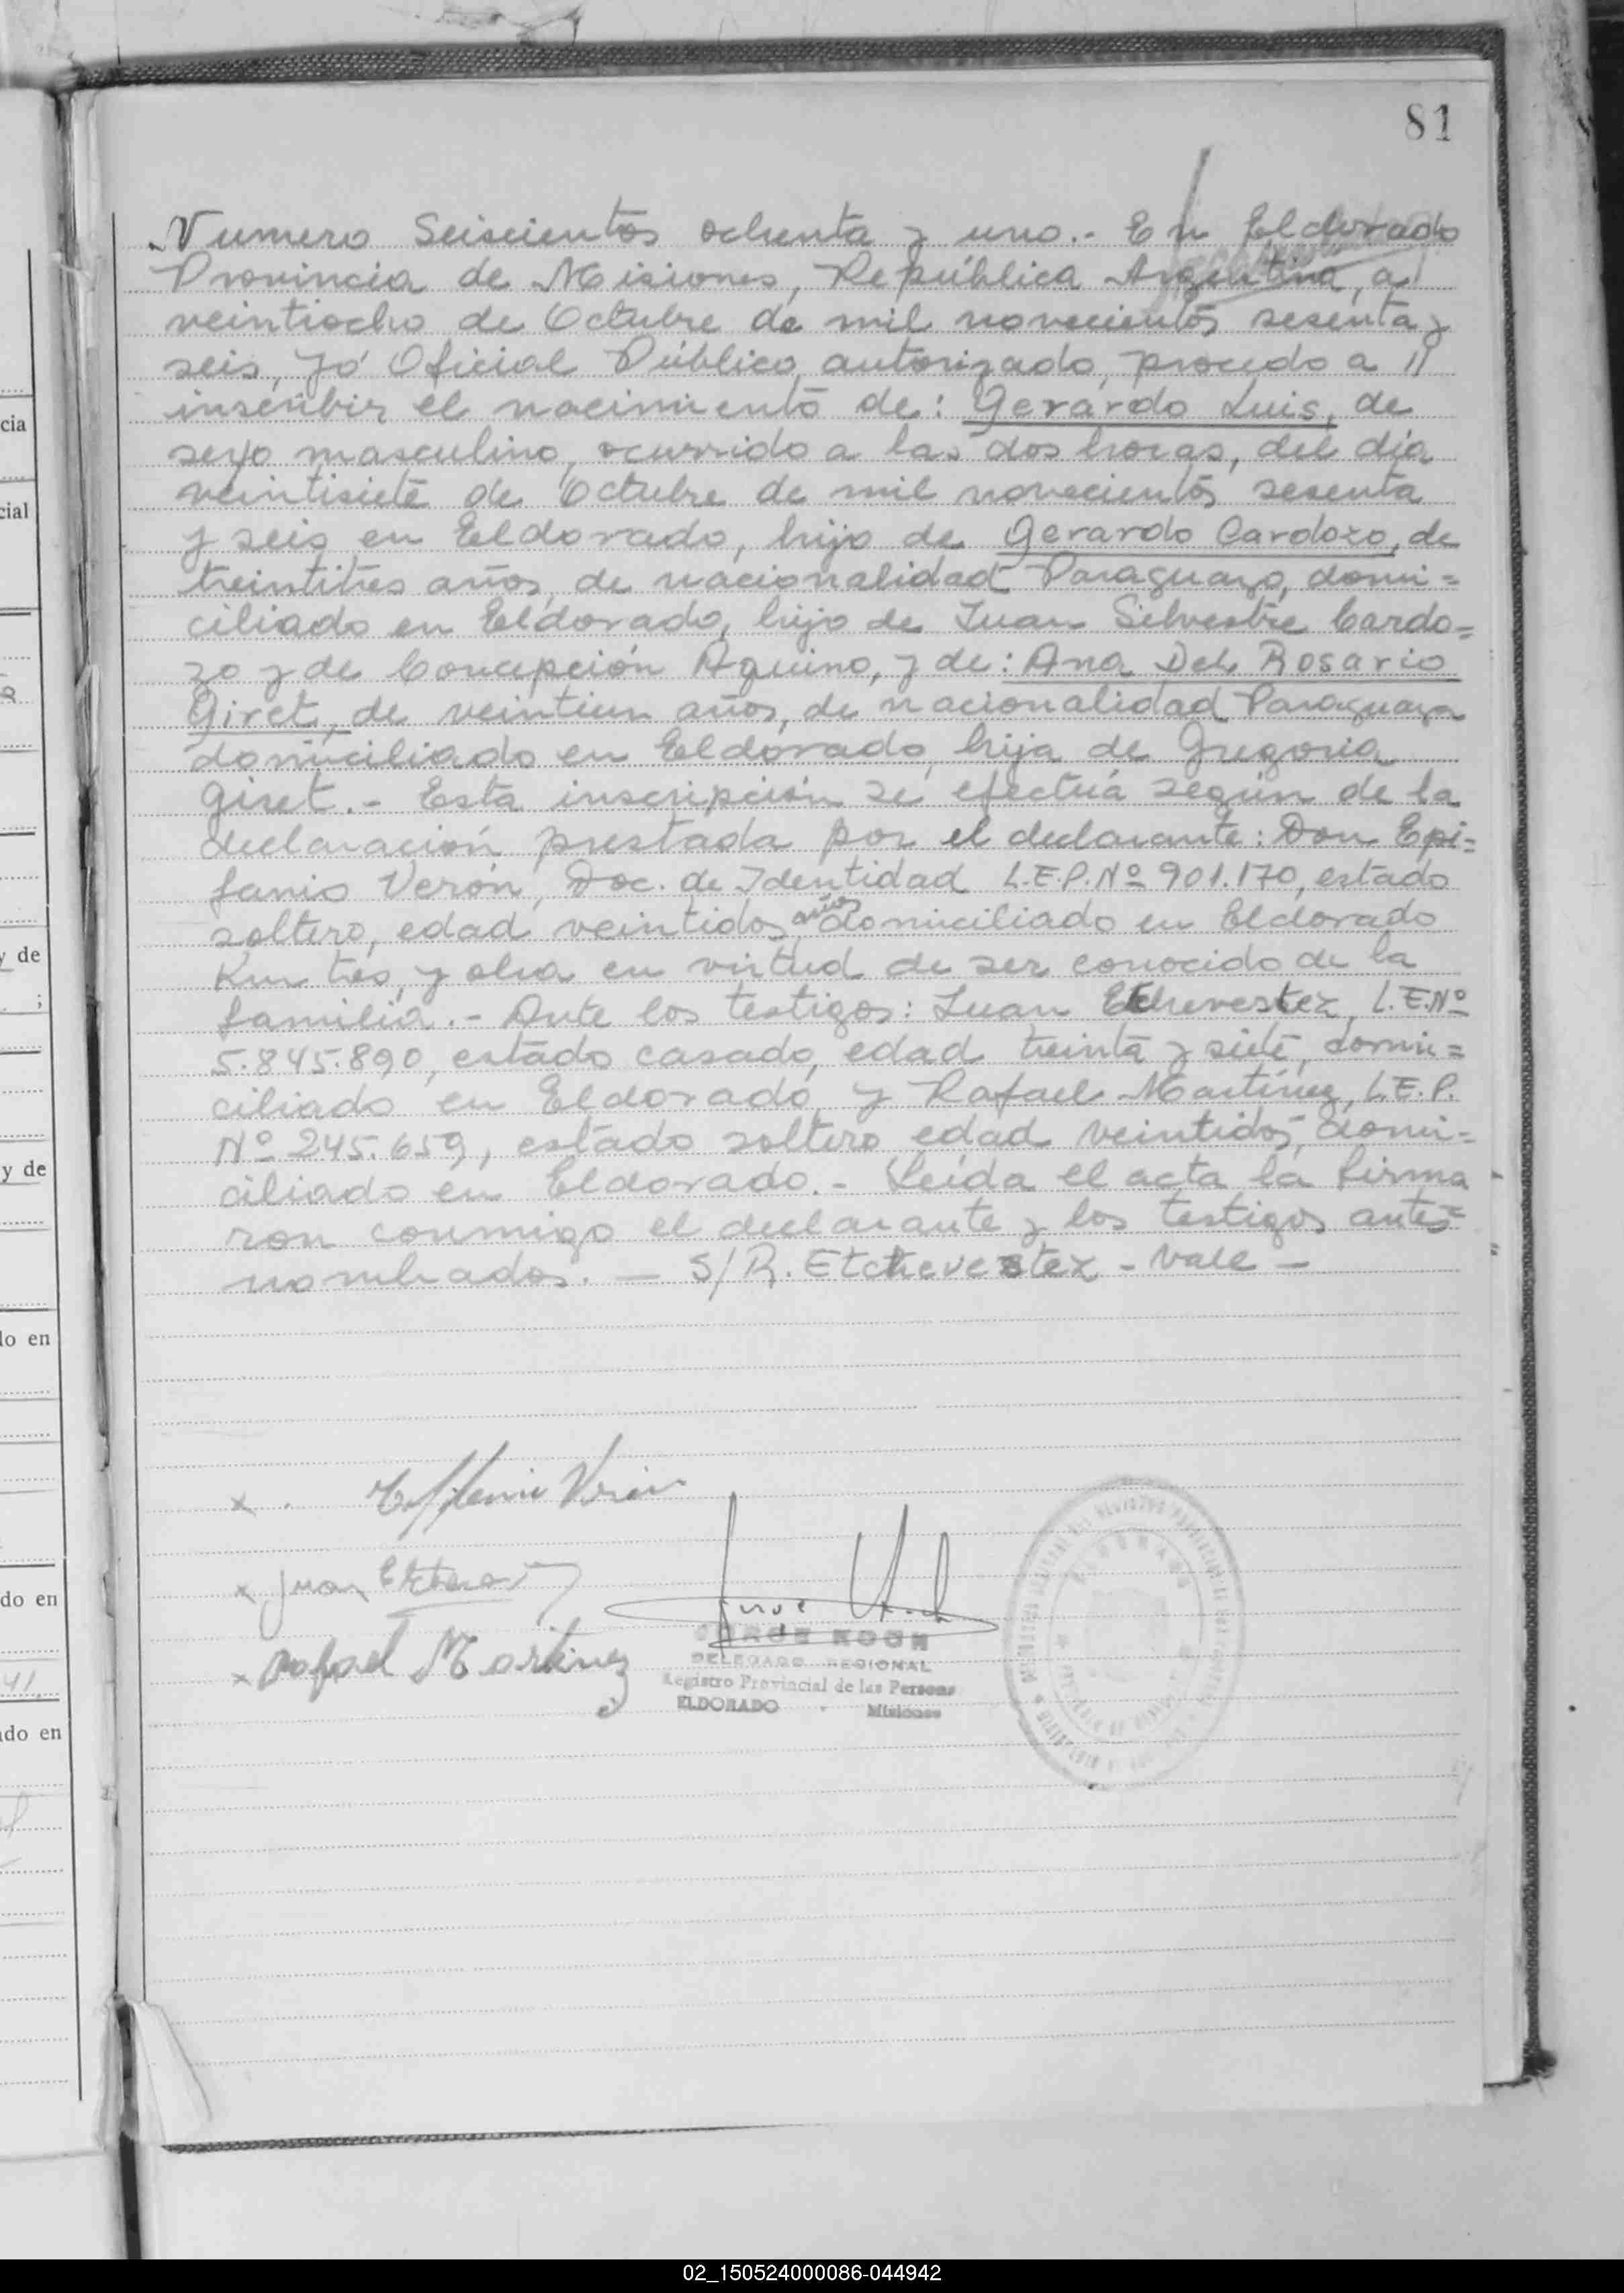 81
Numero Seiscientos ochenta y uno.- En Eldorado
Provincia de Misiones, República Argentina, a
veintiocho de Octubre de mil novecientos sesenta y
seis, yó Oficial Público autorizado, procedo a //
inscribir el nacimiento de: Gerardo Luis, de
sexo masculino, ocurrido a las dos horas, del día
veintisiete de Octubre de mil novecientos sesenta
y seis en Eldorado, hijo de Gerardo Cardozo, de
treintitres años, de nacionalidad Paraguaya, domi=
ciliado en Eldorado, hijo de Juan Silvestre Cardo=
zo y de Concepción Aquino, y de: Ana Del Rosario
Giret, de veintiun años, de nacionalidad Paraguaya
domiciliado en Eldorado, hija de Gregoria
Giret.- Esta inscripción se efectúa según de la
declaración prestada por el declarante: Don Epi=
fanio Verón, Doc. de Identidad L.E.P.Nº 901.170, estado
soltero, edad veintidos años domiciliado en Eldorado
Km tres, y obra en virtud de ser conocido de la
familia.- Ante los testigos: Juan Etchevestez, L.E.Nº
5.845.890, estado casado, edad treinta y siete, domi=
ciliado en Eldorado y Rafael Martínez, L.E.P.
Nº 245.659, estado soltero edad veintidos, domi=
ciliado en Eldorado.- Leída el acta la firma
ron conmigo el declarante y los testigos antes=
nombrados. — S/R. Etchevestez - Vale -
x Verón
x Juan
x Rafael Martinez
JORGE KOCH
DELEGADO REGIONAL
Registro Provincial de las Personas
ELDORADO - Misiones
cia
cial
y de
;
y de
do en
do en
41
do en
02_150524000086-044942